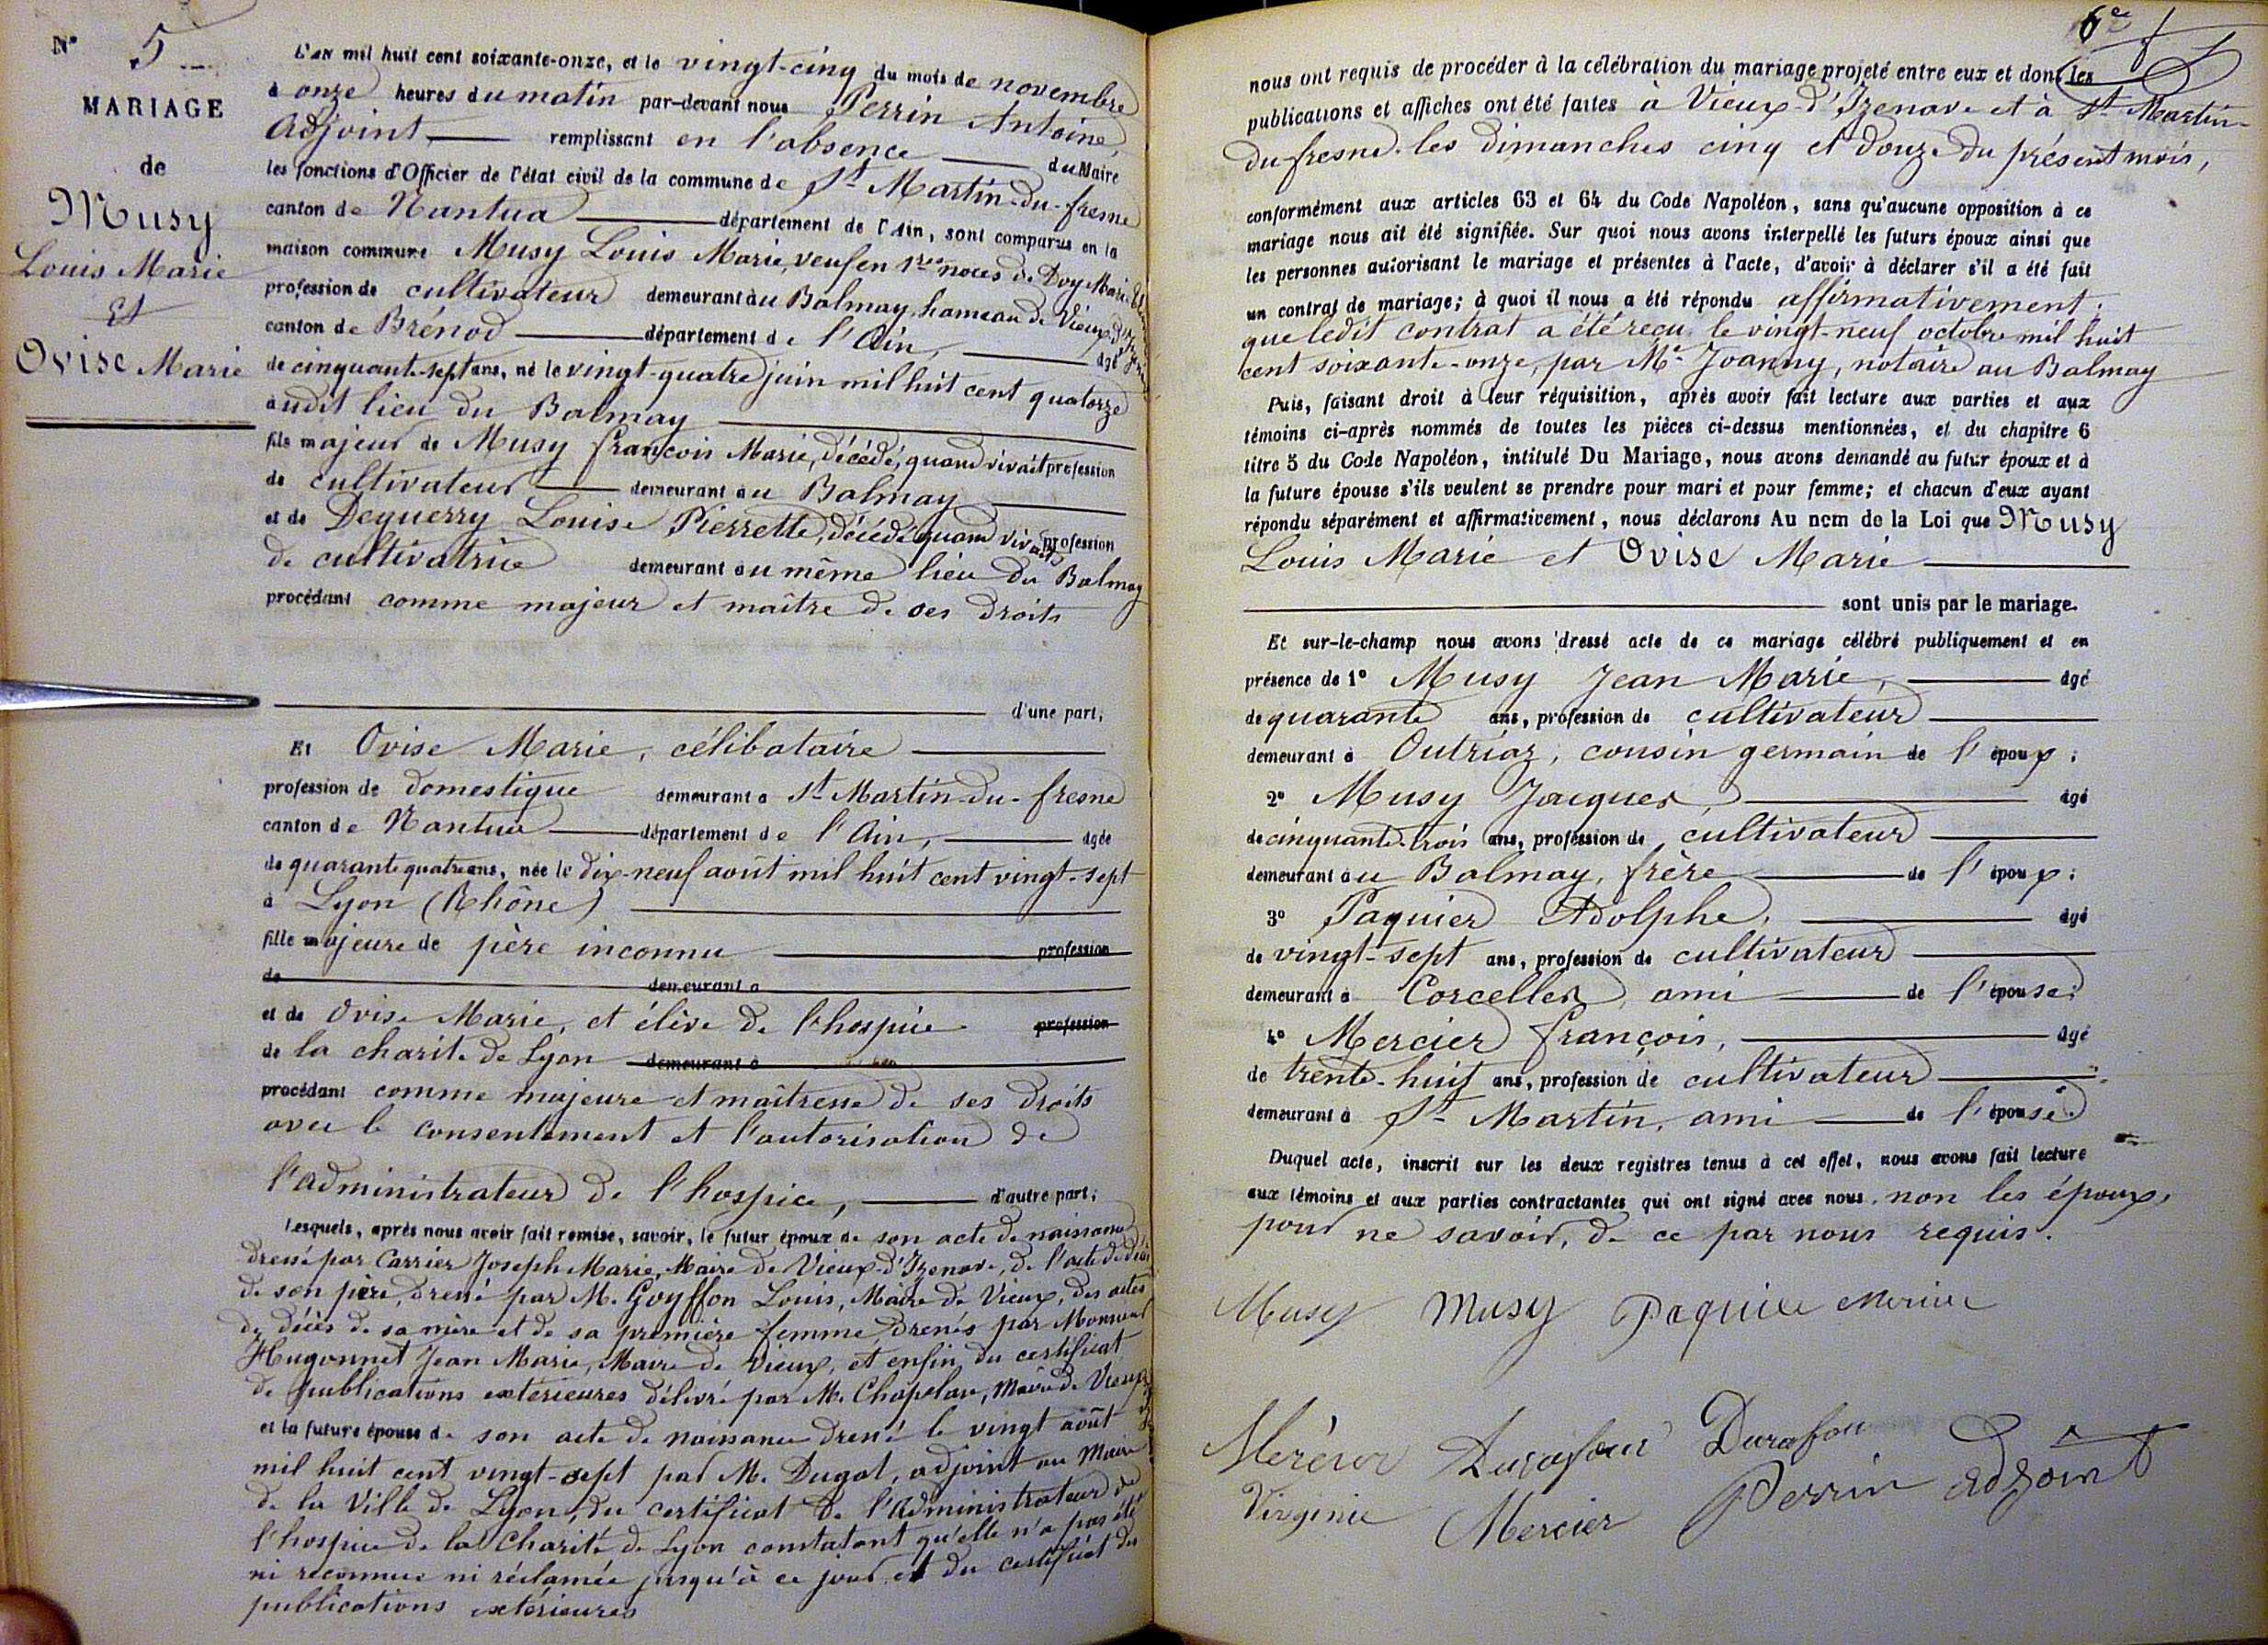 N° 5
MARIAGE
de
Musy
Louis Marie
Et
Ovise Marie
L'an mil huit cent soixante-onze, et le vingt-cinq du mois de novembre
à onze heures du matin par-devant nous Perrin Antoine,
Adjoint remplissant en l'absence du Maire
les fonctions d'Officier de l'état civil de la commune de St Martin-du-fresne
canton de Nantua département de l'Ain, sont comparus en la
maison commune Musy Louis Marie, veuf en 1res noces de Doy Marie
profession de cultivateur demeurant au Balmay, hameau de Vieux d'Izenave
canton de Brénod département de l'Ain, agé
de cinquante-sept ans, né le vingt-quatre juin mil huit cent quatorze
audit lieu du Balmay
fils majeur de Musy françois Marie, décédé, quand vivait profession
de cultivateur demeurant au Balmay
et de Deguerry Louise Pierrette, décédé quand vivait profession
de cultivatrice demeurant au même lieu du Balmay
procédant comme majeur et maître de ses droits
d'une part;
Et Ovise Marie, célibataire
profession de domestique demeurant à St Martin-du-fresne
canton de Nantua département de l'Ain, agée
de quarante quatre ans, née le dix-neuf août mil huit cent vingt-sept
à Lyon (Rhône)
fille majeure de père inconnu profession
de demeurant à
et de Ovise Marie, et élève de l'hospice profession
de la charité de Lyon demeurant à
procédant comme majeure et maîtresse de ses droits
avec le consentement et l'autorisation de
l'administrateur de l'hospice, d'autre part;
Lesquels, après nous avoir fait remise, savoir, le futur époux de son acte de naissance
dressé par Carrier Joseph Marie, Maire de Vieux-d'Izenave, de l'acte de décès
de son père, dressé par M. Goyffon Louis, Maire de Vieux, des actes
de décès de sa mère et de sa première femme, dressés par Monsieur
Hugonnet Jean Marie, Maire de Vieux, et enfin du certificat
de publications extérieures délivré par M. Chapelan, Maire de Vieux
et la future épouse de son acte de naissance dressé le vingt août
mil huit cent vingt-sept par M. Dugat, adjoint au Maire
de la Ville de Lyon, du certificat de l'administrateur de
l'hospice de la Charité de Lyon constatant qu'elle n'a pas été
ni reconnue ni réclamée jusqu'à ce jour et du certificat des
publications extérieures
6e
nous ont requis de procéder à la célébration du mariage projeté entre eux et dont les
publications et affiches ont été faites à Vieux-d'Izenave et à St Martin-
du fresne. les dimanches cinq et douze du présent mois,
conformément aux articles 63 et 64 du Code Napoléon, sans qu'aucune opposition à ce
mariage nous ait été signifiée. Sur quoi nous avons interpellé les futurs époux ainsi que
les personnes autorisant le mariage et présentes à l'acte, d'avoir à déclarer s'il a été fait
un contrat de mariage; à quoi il nous a été répondu affirmativement:
que ledit contrat a été reçu le vingt-neuf octobre mil huit
cent soixante-onze, par Me Joanny, notaire au Balmay
Puis, faisant droit à leur réquisition, après avoir fait lecture aux parties et aux
témoins ci-après nommés de toutes les pièces ci-dessus mentionnées, et du chapitre 6
titre 5 du Code Napoléon, intitulé Du Mariage, nous avons demandé au futur époux et à
la future épouse s'ils veulent se prendre pour mari et pour femme; et chacun d'eux ayant
répondu séparément et affirmativement, nous déclarons Au nom de la Loi que Musy
Louis Marie et Ovise Marie
sont unis par le mariage.
Et sur-le-champ nous avons dressé acte de ce mariage célébré publiquement et en
présence de 1° Musy Jean Marie, agé
de quarante ans, profession de cultivateur
demeurant à Outriaz, cousin germain de l'époux;
2° Musy Jacques, agé
de cinquante-trois ans, profession de cultivateur
demeurant au Balmay, frère de l'époux;
3° Paquier Adolphe, agé
de vingt-sept ans, profession de cultivateur
demeurant à Corcelles, ami de l'épouse;
4° Mercier françois, agé
de trente-huit ans, profession de cultivateur
demeurant à St Martin, ami de l'épouse.
Duquel acte, inscrit sur les deux registres tenus à cet effet, nous avons fait lecture
aux témoins et aux parties contractantes qui ont signé avec nous, non les époux,
pour ne savoir, de ce par nous requis.
Musy Musy Paquier Mercier
Durafour
Virginie Mercier Perrin adjoint